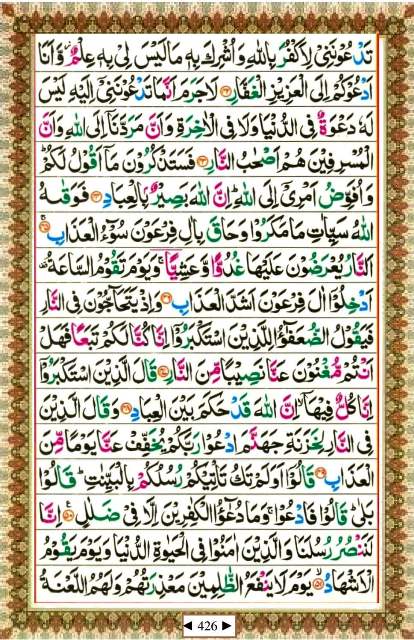 تَدْعُوْنَنِيْ لِاَكْفُرَ بِاللّٰهِ وَاُشْرِكَ بِهٖ مَا لَيْسَ لِيْ بِهٖ عِلْمٌ ۫ وَّاَنَا
اَدْعُوْكُمْ اِلَى الْعَزِيْزِ الْغَفَّارِ ﴿۴۲﴾ لَا جَرَمَ اَنَّمَا تَدْعُوْنَنِيْٓ اِلَيْهِ لَيْسَ
لَهٗ دَعْوَةٌ فِي الدُّنْيَا وَلَا فِي الْاٰخِرَةِ وَاَنَّ مَرَدَّنَآ اِلَى اللّٰهِ وَاَنَّ
الْمُسْرِفِيْنَ هُمْ اَصْحٰبُ النَّارِ ﴿۴۳﴾ فَسَتَذْكُرُوْنَ مَآ اَقُوْلُ لَكُمْ ؕ
وَاُفَوِّضُ اَمْرِيْٓ اِلَى اللّٰهِ ؕ اِنَّ اللّٰهَ بَصِيْرٌۢ بِالْعِبَادِ ﴿۴۴﴾ فَوَقٰىهُ
اللّٰهُ سَيِّاٰتِ مَا مَكَرُوْا وَحَاقَ بِاٰلِ فِرْعَوْنَ سُوْٓءُ الْعَذَابِ ﴿۴۵﴾
اَلنَّارُ يُعْرَضُوْنَ عَلَيْهَا غُدُوًّا وَّعَشِيًّا ۚ وَيَوْمَ تَقُوْمُ السَّاعَةُ ۫
اَدْخِلُوْٓا اٰلَ فِرْعَوْنَ اَشَدَّ الْعَذَابِ ﴿۴۶﴾ وَاِذْ يَتَحَآجُّوْنَ فِي النَّارِ
فَيَقُوْلُ الضُّعَفٰٓؤُا لِلَّذِيْنَ اسْتَكْبَرُوْٓا اِنَّا كُنَّا لَكُمْ تَبَعًا فَهَلْ
اَنْتُمْ مُّغْنُوْنَ عَنَّا نَصِيْبًا مِّنَ النَّارِ ﴿۴۷﴾ قَالَ الَّذِيْنَ اسْتَكْبَرُوْٓا
اِنَّا كُلٌّ فِيْهَآ ۙ اِنَّ اللّٰهَ قَدْ حَكَمَ بَيْنَ الْعِبَادِ ﴿۴۸﴾ وَقَالَ الَّذِيْنَ
فِي النَّارِ لِخَزَنَةِ جَهَنَّمَ ادْعُوْا رَبَّكُمْ يُخَفِّفْ عَنَّا يَوْمًا مِّنَ
الْعَذَابِ ﴿۴۹﴾ قَالُوْٓا اَوَلَمْ تَكُ تَاْتِيْكُمْ رُسُلُكُمْ بِالْبَيِّنٰتِ ؕ قَالُوْا
بَلٰى ؕ قَالُوْا فَادْعُوْا ۚ وَمَا دُعٰٓؤُا الْكٰفِرِيْنَ اِلَّا فِيْ ضَلٰلٍ ﴿۵۰﴾ اِنَّا
لَنَنْصُرُ رُسُلَنَا وَالَّذِيْنَ اٰمَنُوْا فِي الْحَيٰوةِ الدُّنْيَا وَيَوْمَ يَقُوْمُ
الْاَشْهَادُ ﴿۵۱﴾ يَوْمَ لَا يَنْفَعُ الظّٰلِمِيْنَ مَعْذِرَتُهُمْ وَلَهُمُ اللَّعْنَةُ
◄ 426 ►